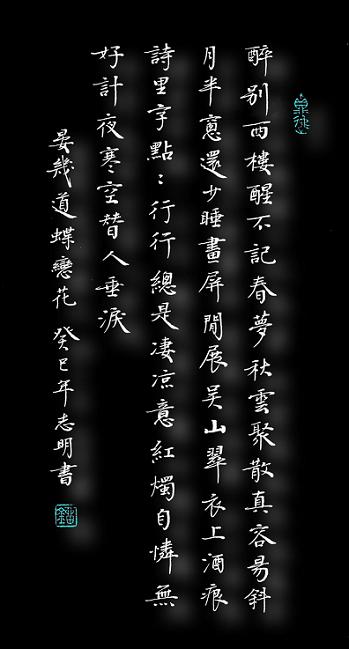 醉別西樓醒不記春夢秋雲聚散真容易斜
月半窻還少睡畫屏閒展吳山翠衣上酒痕
詩里字點〻行行總是凄凉意紅燭自憐無
好計夜寒空替人垂淚
晏幾道蝶戀花 癸巳年志明書